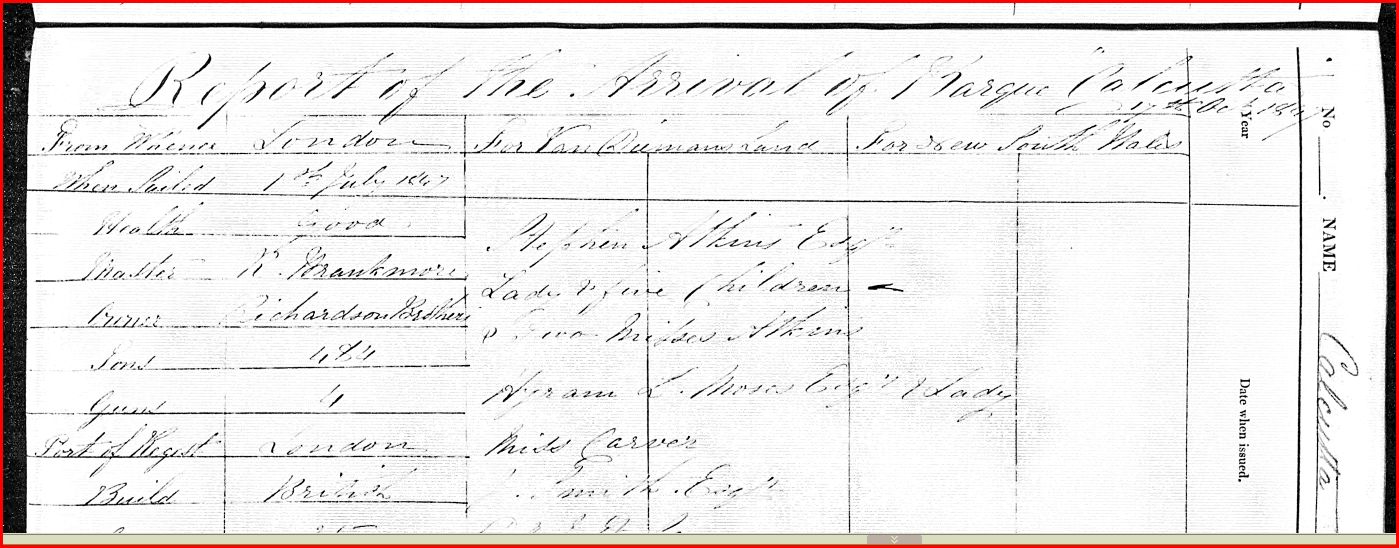 Report of the Arrival of Barque "Calcutta
17th Oct 1847
From Whence London For Van Diemans Land For New South Wales
When Sailed 1st July 1847
Health Good
Stephen Atkins Esqr
Master K. Brankmore
Lady & five Children
Owner Richardson Brothers
& Two Misses Atkins
Tons 484
Guns 4
Hyram L. Moses Esqr & Lady
Port of Regist London
Miss Carver
Build British
Smith Esqr
Year
Date when issued.
No
NAME Calcutta